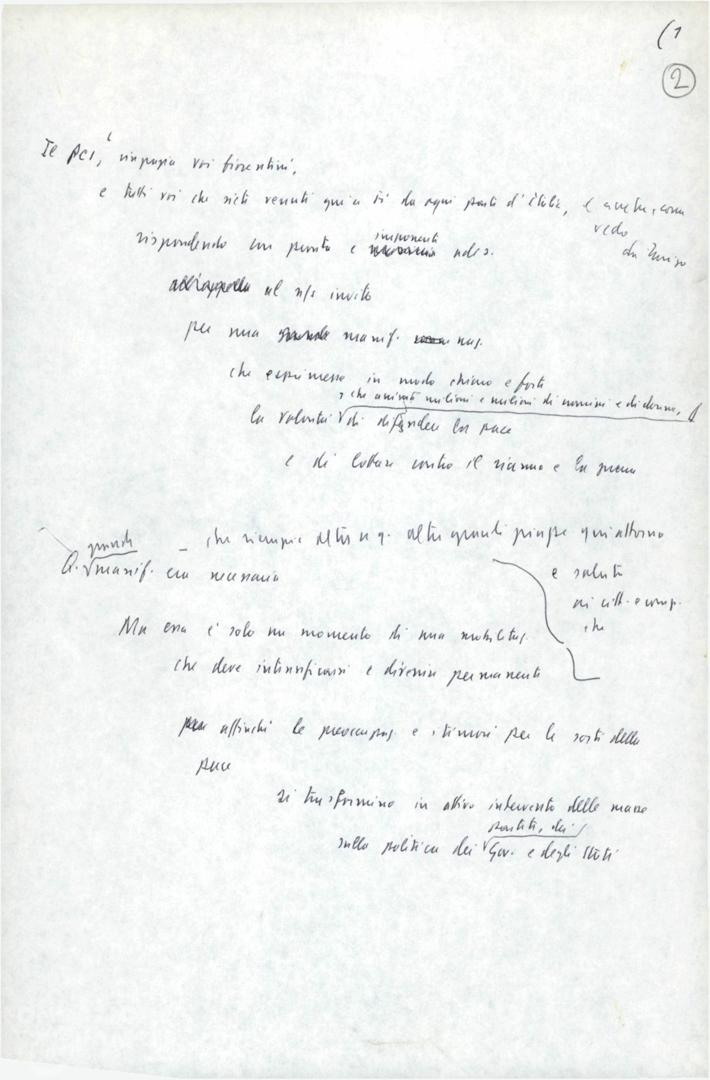 (1
2
Il PCI, ringrazia voi fiorentini,
e tutti voi che siete venuti qui a Fi da ogni parte d'Italia, e anche, come
vedo
imponente
rispondendo con pronta e ades.
all'appello al ns invito
per una grande manif. naz.
che esprimesse in modo chiaro e forte
che anima milioni e milioni di uomini e di donne,
la volontà di difendere la pace
e di lottare contro il riarmo e la guerra
grande
che riempie altre grandi piazze qui attorno
Q. manif. era necessaria
e saluto
ai citt. e comp.
che
Ma essa è solo un momento di una mobilitaz.
che deve intensificarsi e divenire permanente
per affinché le preoccupaz. e i timori per le sorti della
pace
si trasformino in attivo intervento delle masse
partiti, dei
sulla politica dei Gov. e degli Stati